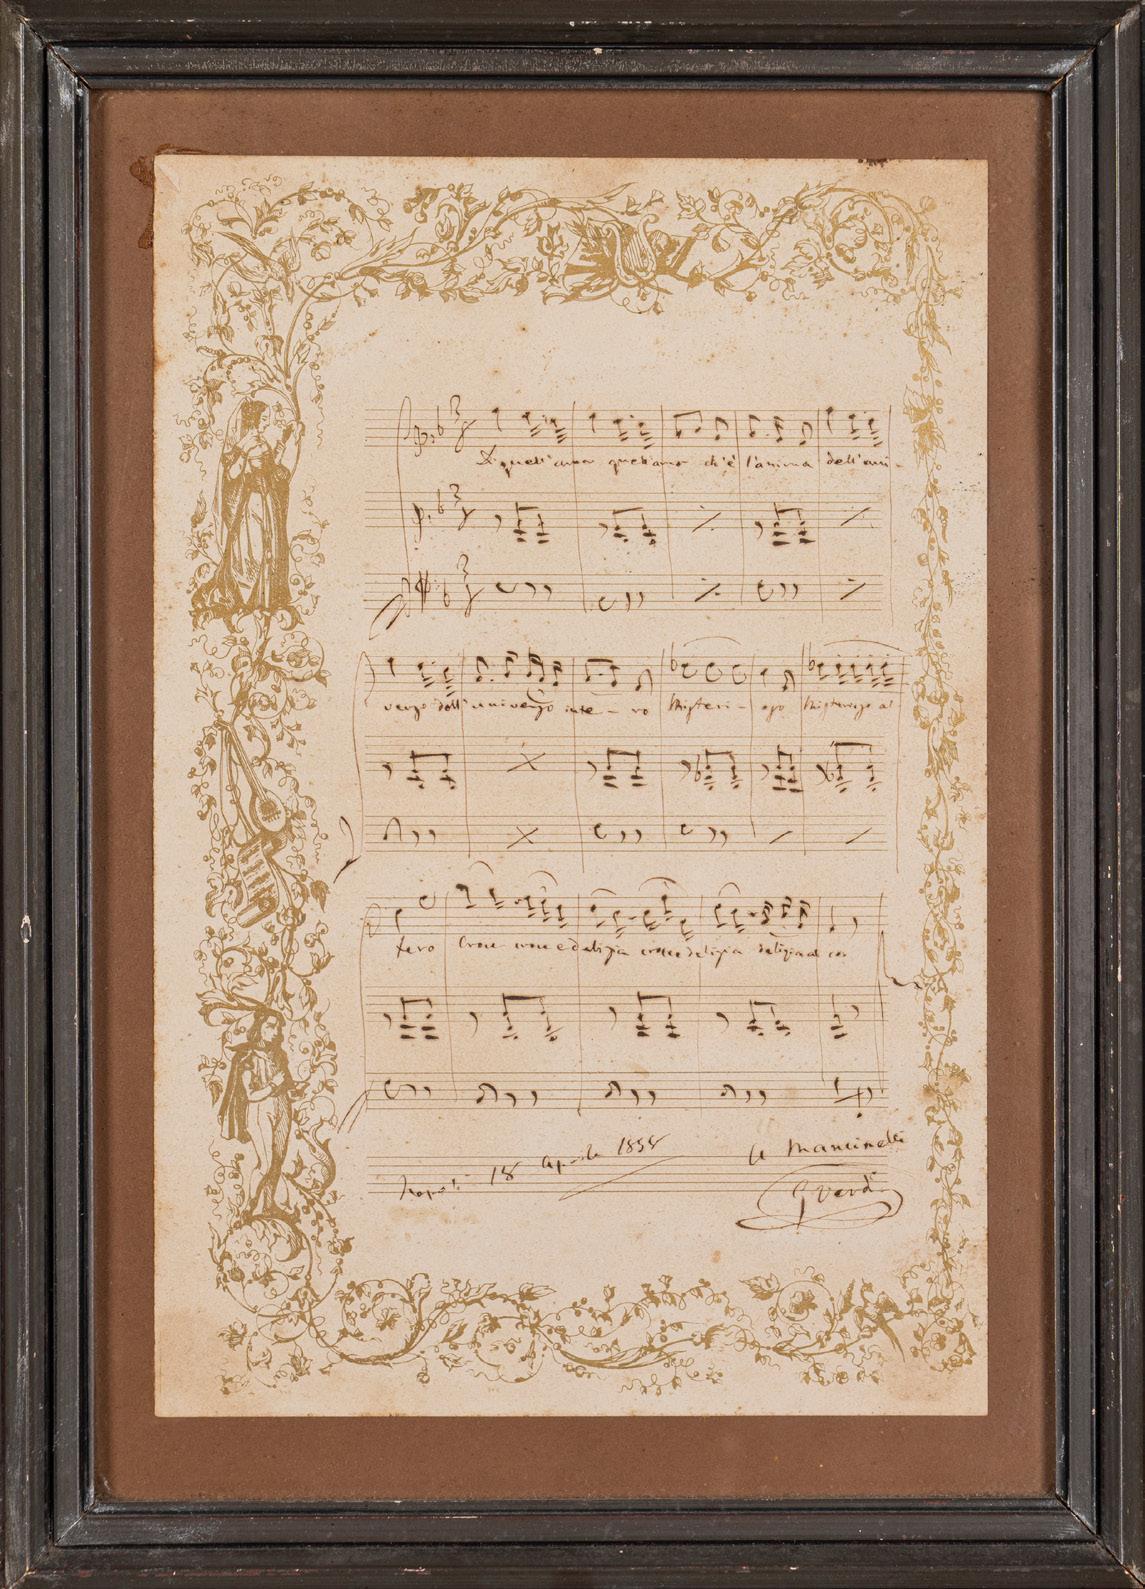 Di quell'amor quell'amor ch'è l'anima dell'uni-
verso dell'universo inte-ro Misteri-oso Misterioso al
tero Croce croce e delizia croce delizia delizia al cor
Napoli 18 Aprile 1858 a Mancinelli
G Verdi